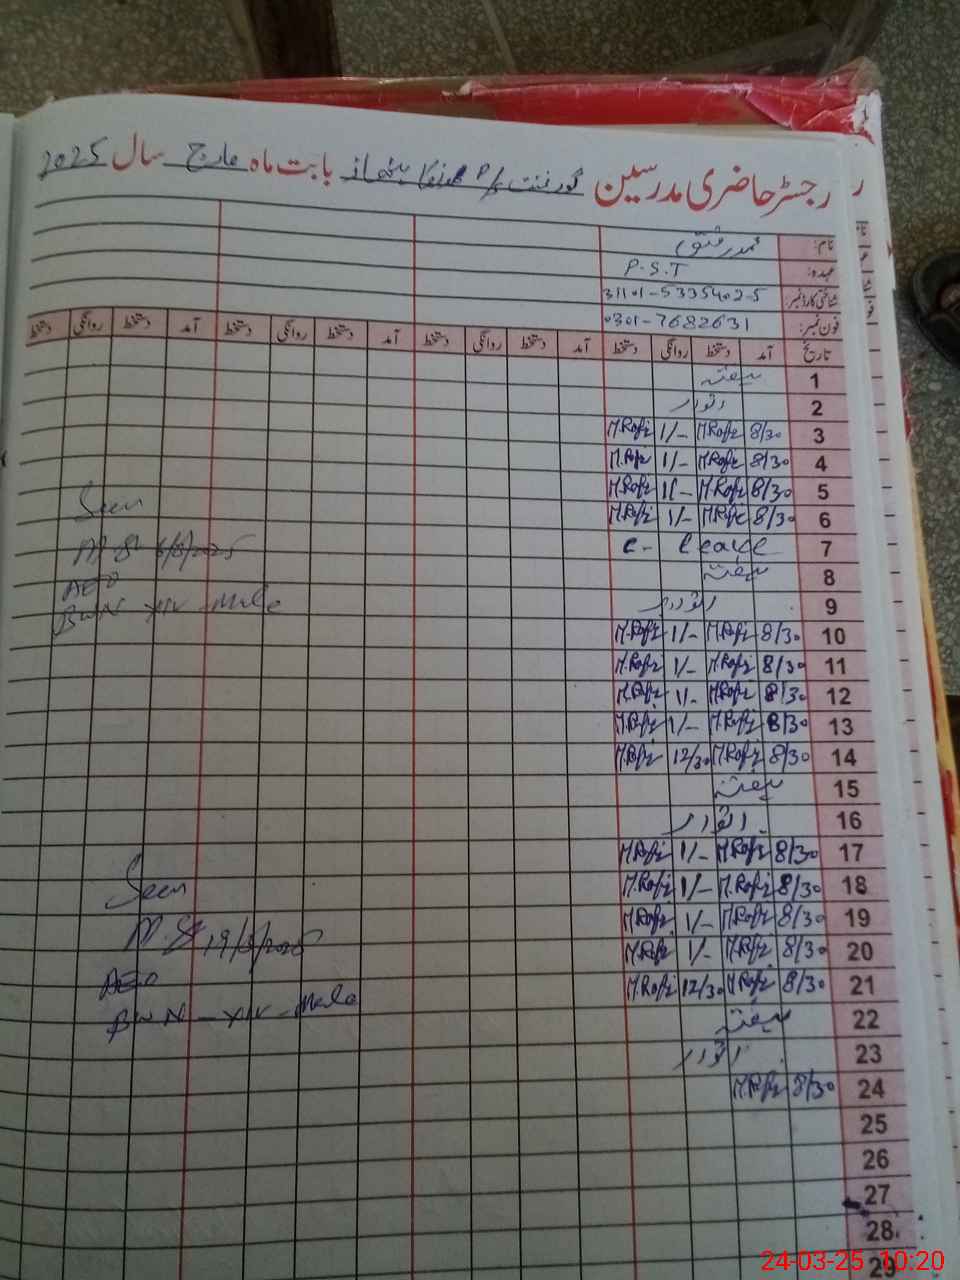 رجسٹر حاضری مدرسین گورنمنٹ P/S بابت ماہ مارچ سال 2025
نام: محمد رفیق
عہدہ: P.S.T
شناختی کارڈ نمبر: 31101-5335402-5
فون نمبر: 0301-7682631
تاریخ آمد دستخط روانگی دستخط آمد دستخط روانگی دستخط آمد دستخط روانگی دستخط
1 ہفتہ
2 اتوار
3 8/30 M.Rafiq 1/- M.Rafiq
4 8/30 M.Rafiq 1/- M.Rafiq
5 8/30 M.Rafiq 1/- M.Rafiq
6 8/30 M.Rafiq 1/- M.Rafiq
7 C- leave
8 ہفتہ
9 اتوار
10 8/30 M.Rafiq 1/- M.Rafiq
11 8/30 M.Rafiq 1/- M.Rafiq
12 8/30 M.Rafiq 1/- M.Rafiq
13 8/30 M.Rafiq 1/- M.Rafiq
14 8/30 M.Rafiq 12/30 M.Rafiq
15 ہفتہ
16 اتوار
17 8/30 M.Rafiq 1/- M.Rafiq
18 8/30 M.Rafiq 1/- M.Rafiq
19 8/30 M.Rafiq 1/- M.Rafiq
20 8/30 M.Rafiq 1/- M.Rafiq
21 8/30 M.Rafiq 12/30 M.Rafiq
22 ہفتہ
23 اتوار
24 8/30 M.Rafiq
25
26
27
28
29
Seen
6/3/2025
AEO
BWN XIV - Male
Seen
19/3/2025
AEO
BWN - XIV - Male
24-03-25 10:20